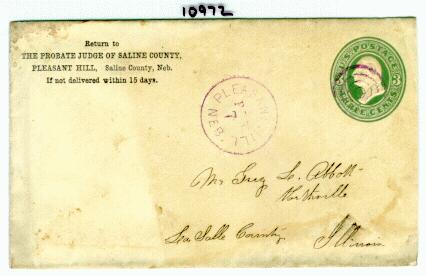 10972
Return to
THE PROBATE JUDGE OF SALINE COUNTY,
PLEASANT HILL, Saline County, Neb.
If not delivered within 15 days.
U.S. POSTAGE
3 3
THREE CENTS
PLEASANT HILL NEB.
Mr L. Abbott
Northville
La Salle County Illinois